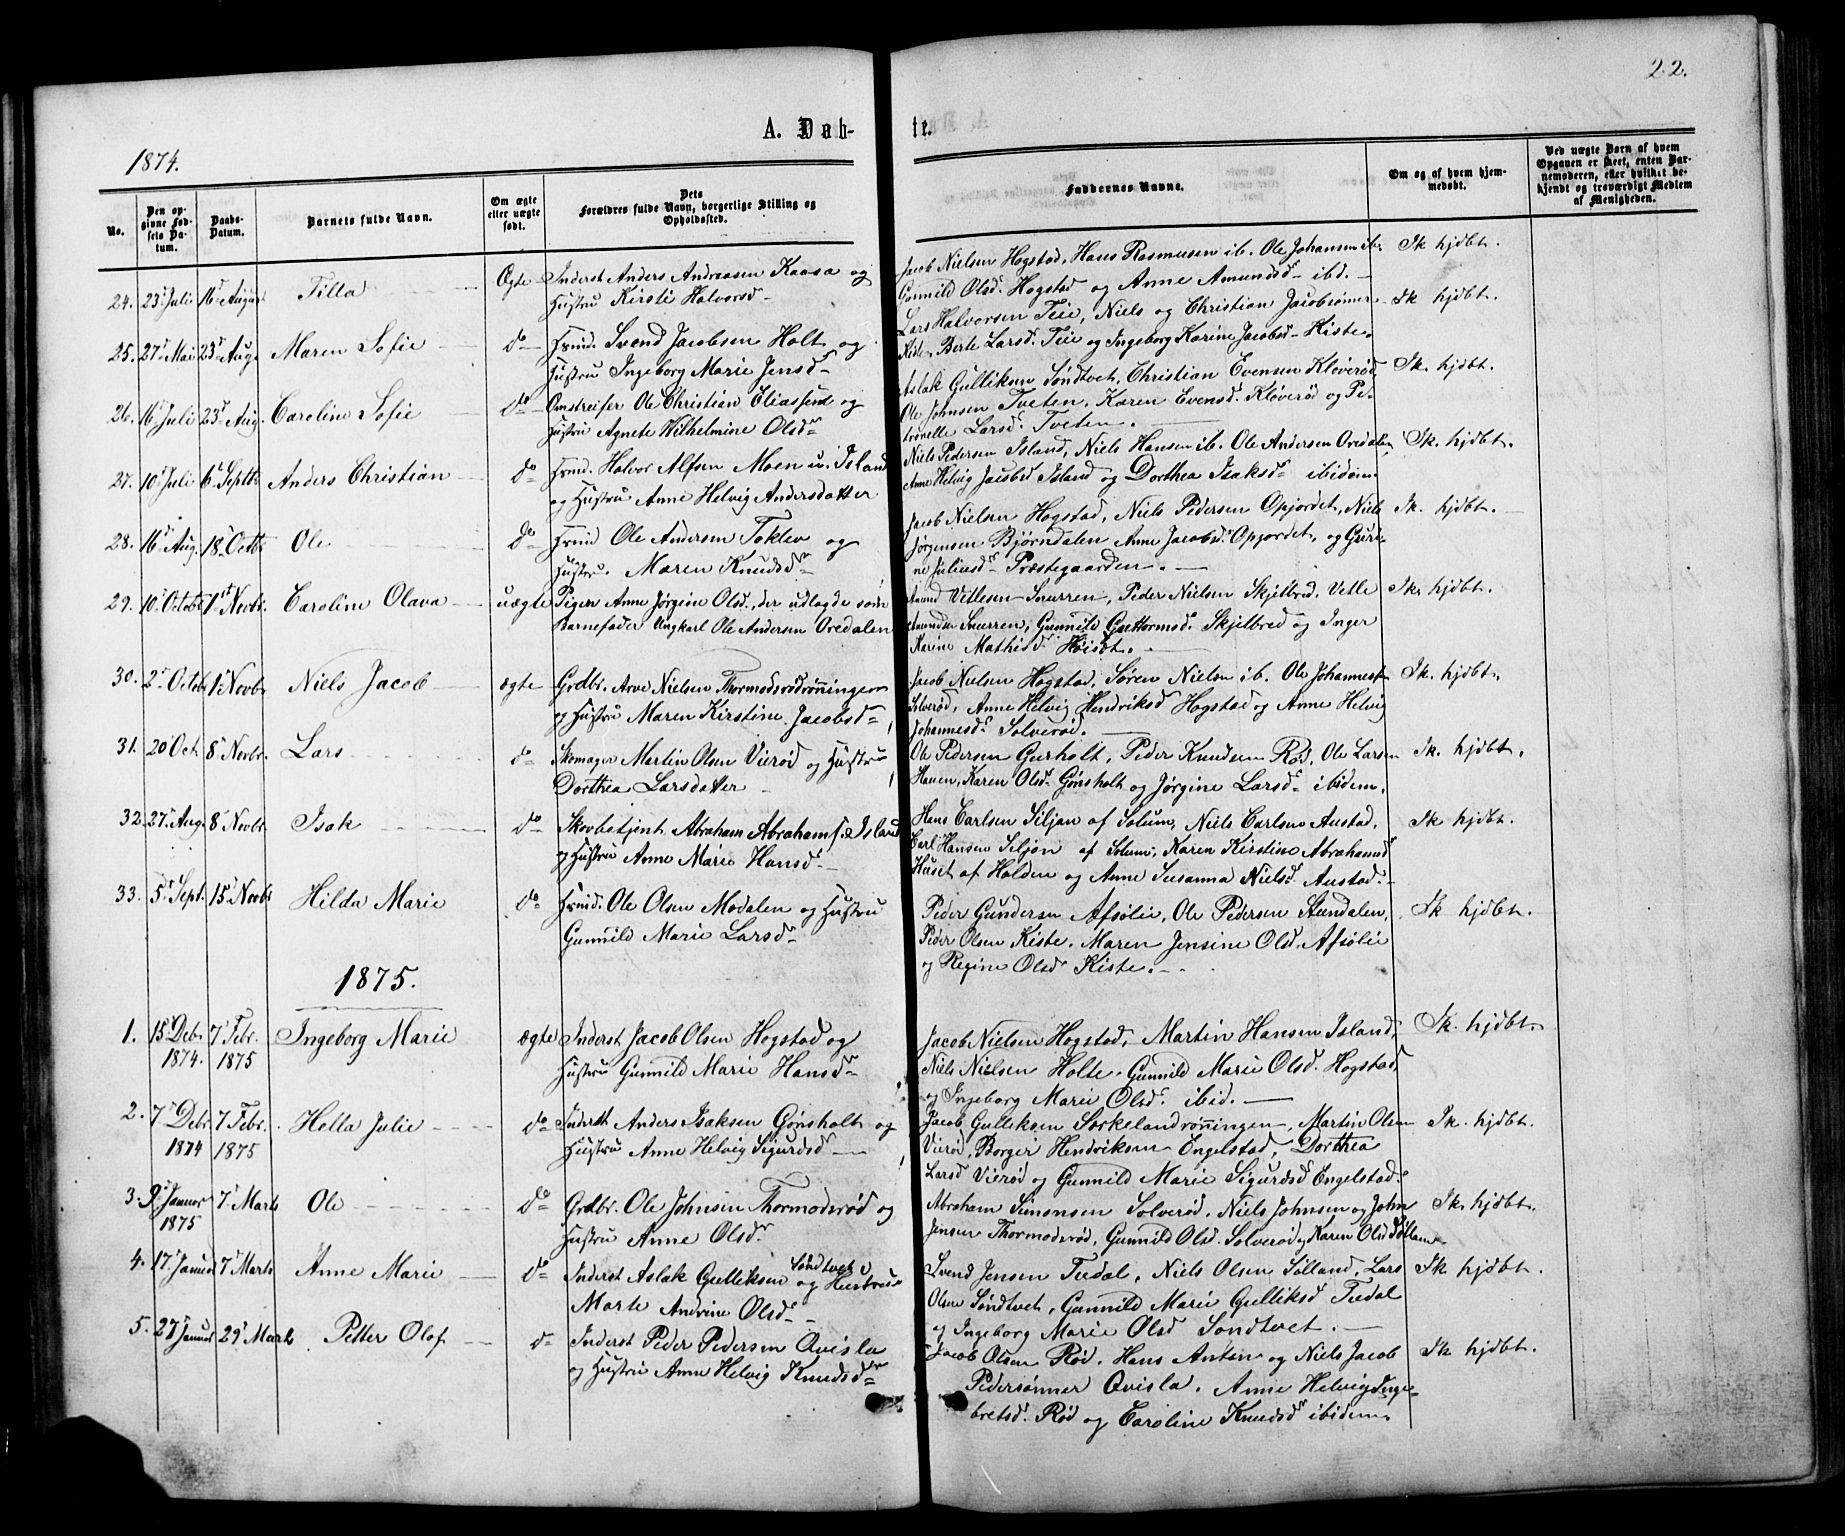 22.
A. Døb-
te.
1874.
No.
Den op-
givne Fød-
sels Da-
tum.
Daabs-
Datum.
Barnets fulde Navn.
Om ægte
eller uægte
født.
Dets
Forældres fulde Navn, borgerlige Stilling og
Opholdssted.
Faddernes Navne.
Om og af hvem hjem-
medøbt.
Ved uægte Børn af hvem
Opgaven er skeet, enten Bar-
nemoderen, eller hvilket be-
kjendt og troværdigt Medlem
af Menigheden.
24. 23 Juli 16 August Tilla Ægte Inderst Anders Andreasen Kaasa og
Hustru Kirsti Halvorsd
Jacob Nielsen Hogstad, Hans Rasmusen ib. Ole Johansen ib.
Gunnild Olsd. Hogstad og Anne Amundsd ibid.
Ik hjdbt.
25. 27 Mai 23 Aug. Maren Sofie do Svend Jacobsen Holt og
Hustru Ingeborg Marie Jensd
Lars Halvorsen Teie, Niels og Christian Jacobsønner
Kiste, Berte Larsd. Teie og Ingeborg Karine Jacobsd Kiste.
Ik hjdbt.
26. 16 Juli 23 Aug. Caroline Sofie do Omstreifer Ole Christian Eliassen og
Hustru Agnete Wilhelmine Olsd
Aslak Gulliksen Søndtvet, Christian Evensen Kløverød
Ole Johnsen Tveten, Karen Evensd. Kløverød og Pe-
tronelle Larsd. Tveten.
Ik. hjdbt.
27. 10 Juli 6 Septbr Anders Christian do Halvor Alfsen Moen u. Island
og Hustru Anne Helvig Andersdatter
Niels Pedersen Island, Niels Hansen ib. Ole Andersen Ovedalen,
Anne Helvig Jacobsd Island og Dorthea Isaksd ibidem
Ik. hjdbt.
28. 16 Aug. 18 Octbr Ole do Ole Andersen Toklev og
Hustru. Maren Knudsd
Jacob Nielsen Hogstad, Niels Pedersen Opjordet, Niels
Jørgensen Bjørndalen Anne Jacobsd. Opjordet, og Guri-
ne Juliusd Præstegaarden.
Ik. hjdbt.
29. 10 Octobr 1 Novbr. Caroline Olava uægte Pigen Anne Jørgine Olsd., der udlagde som
Barnefader Ungkarl Ole Andersen Ovedalen
Vetlesen Snurren, Peder Nielsen Skjelbred, Vetle
Amundsen Snurren, Gunnild Guttormsd. Skjelbred og Inger
Karine Mathisd
Ik. hjdbt.
30. 2 Octobr 1 Novbr Niels Jacob ægte Grdbr. Arve Nielsen Thormodsrødrønningen
og Hustru Maren Kirstine Jacobsd
Jacob Nielsen Hogstad, Søren Nielsen ib. Ole Johannesen
Solverød, Anne Helvig Hendriksd Hogstad og Anne Helvig
Johannesd Solverød.
Ik. hjdbt.
31. 20 Oct. 8 Novbr. Lars do Skomager Martin Olsen Vierød og Hustru
Dorthea Larsdatter
Ole Pedersen Gurholt, Peder Knudsen Rød, Ole Larsen
Hauen, Karen Olsd. Gønsholt og Jørgine Larsd ibidem.
Ik. hjdbt.
32. 27 Aug. 8 Novbr. Isak do Skovbetjent Abraham Abrahams. Island
og Hustru Anne Marie Hansd
Hans Carlsen Siljan af Solum, Niels Carlsen Austad,
Carl Hansen Siljan af Solum, Karen Kirstine Abrahamsd
Huset af Holden og Anne Susanna Nielsd Austad.
Ik hjdbt.
33. 5 Sept. 15 Novbr Hilda Marie do Ole Olsen Modalen og Hustru
Gunnild Marie Larsd
Peder Gundersen Afsølie, Ole Pedersen Stendalen,
Peder Olsen Kiste, Maren Jensine Olsd. Afsølie
og Regine Olsd Kiste.
Ik hjdbt.
1875.
1. 15 Debr 1874. 7 Febr. 1875 Ingeborg Marie ægte Inderst Jacob Olsen Hogstad og
Hustru Gunnild Marie Hansd
Jacob Nielsen Hogstad, Martin Hansen Island,
Niels Nielsen Holte, Gunnild Marie Olsd. Hogstad,
og Ingeborg Marie Olsd. ibid.
Ik. hjdbt.
2. 7 Debr 1874 7 Febr. 1875 Hella Julie do Inderst Anders Isaksen Gønsholt og
Hustru Anne Helvig Sigurdsd
Jacob Gulliksen Sørkelandrønningen, Martin Olsen
Vierød, Børger Hendriksen Engelstad, Dorthea
Larsd Vierød og Gunnild Marie Sigurdsd Engelstad.
Ik. hjdbt.
3. 9 Januar 1875 7 Marts Ole do Grdbr. Ole Johnsen Thormodsrød og
Hustru Anne Olsd.
Abraham Simonsen Solverød, Niels Johnsen og John
Jensen Thormodsrød, Gunnild Olsd. Solverød og Karen Olsd
Ik. hjdbt.
4. 17 Januar 7 Marts Anne Marie do Inderst Aslak Gulliksen Søndtvet og Hustru
Marte Andrine Olsd
Svend Jensen Tudal, Niels Olsen Sølland, Lars
Olsen Søndtvet, Gunnild Marie Gulliksd Tudal
og Ingeborg Marie Olsd Søndtvet.
Ik. hjdbt.
5. 27 Januar 29 Marts Petter Olof do Inderst Peder Pedersen Qvisla
og Hustru Anne Helvig Knudsd
Jacob Olsen Rød, Hans Anton og Niels Jacob
Pedersønner Qvisla, Anne Helvig Inge-
bretsd. Rød og Caroline Knudsd ibidem
Ik hjdbt.